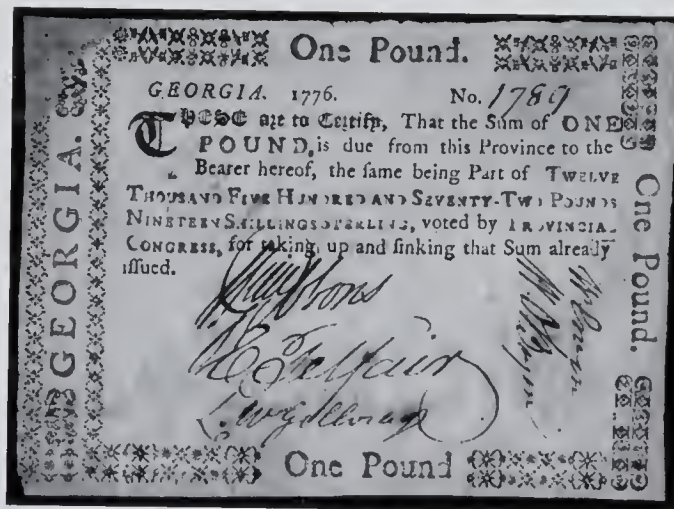 One Pound.
GEORGIA. 1776. No. 1789
THESE are to Certify, That the Sum of ONE
POUND, is due from this Province to the
Bearer hereof, the same being Part of TWELVE
THOUSAND FIVE HUNDRED AND SEVENTY-TWO POUNDS
NINETEEN SHILLINGS STERLING, voted by PROVINCIAL
CONGRESS, for taking up and sinking that Sum already
issued.
GEORGIA.
One Pound.
E Telfair
One Pound